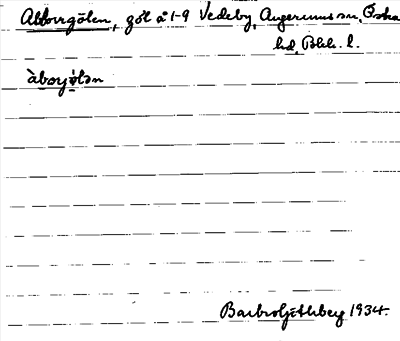 Abborrgölen, göl å 1-9 Vedeby, Augerums sn, Östra
hd, Blek. l.
àborjö̀lən
Barbro Ljethberg 1934.